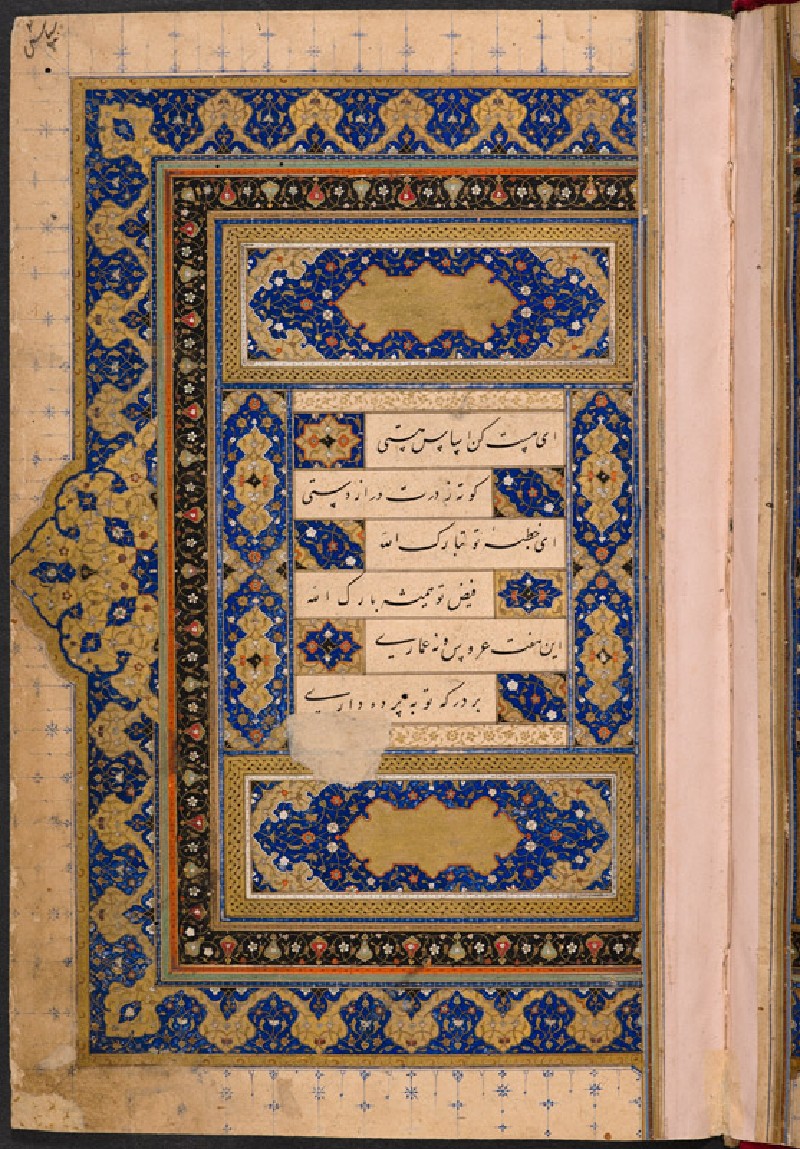 ای هست کن اساس هستی
کوته ز درت دراز دستی
ای خطبه تو تبارک الله
فیض تو همیشه بارک الله
این هفت عروس و نه عماری
بر درگه تو به پرده داری